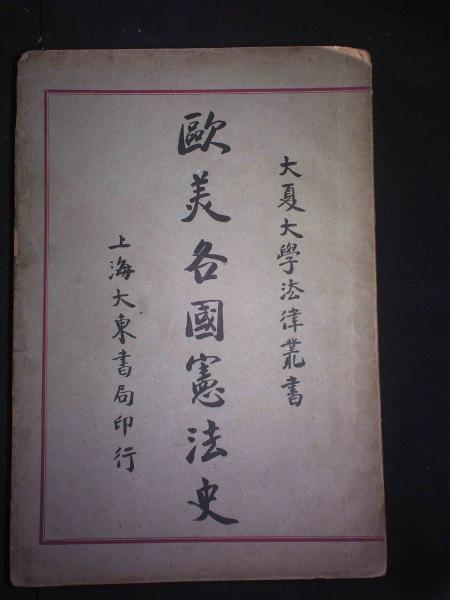 大夏大學法律叢書
歐美各國憲法史
上海大東書局印行